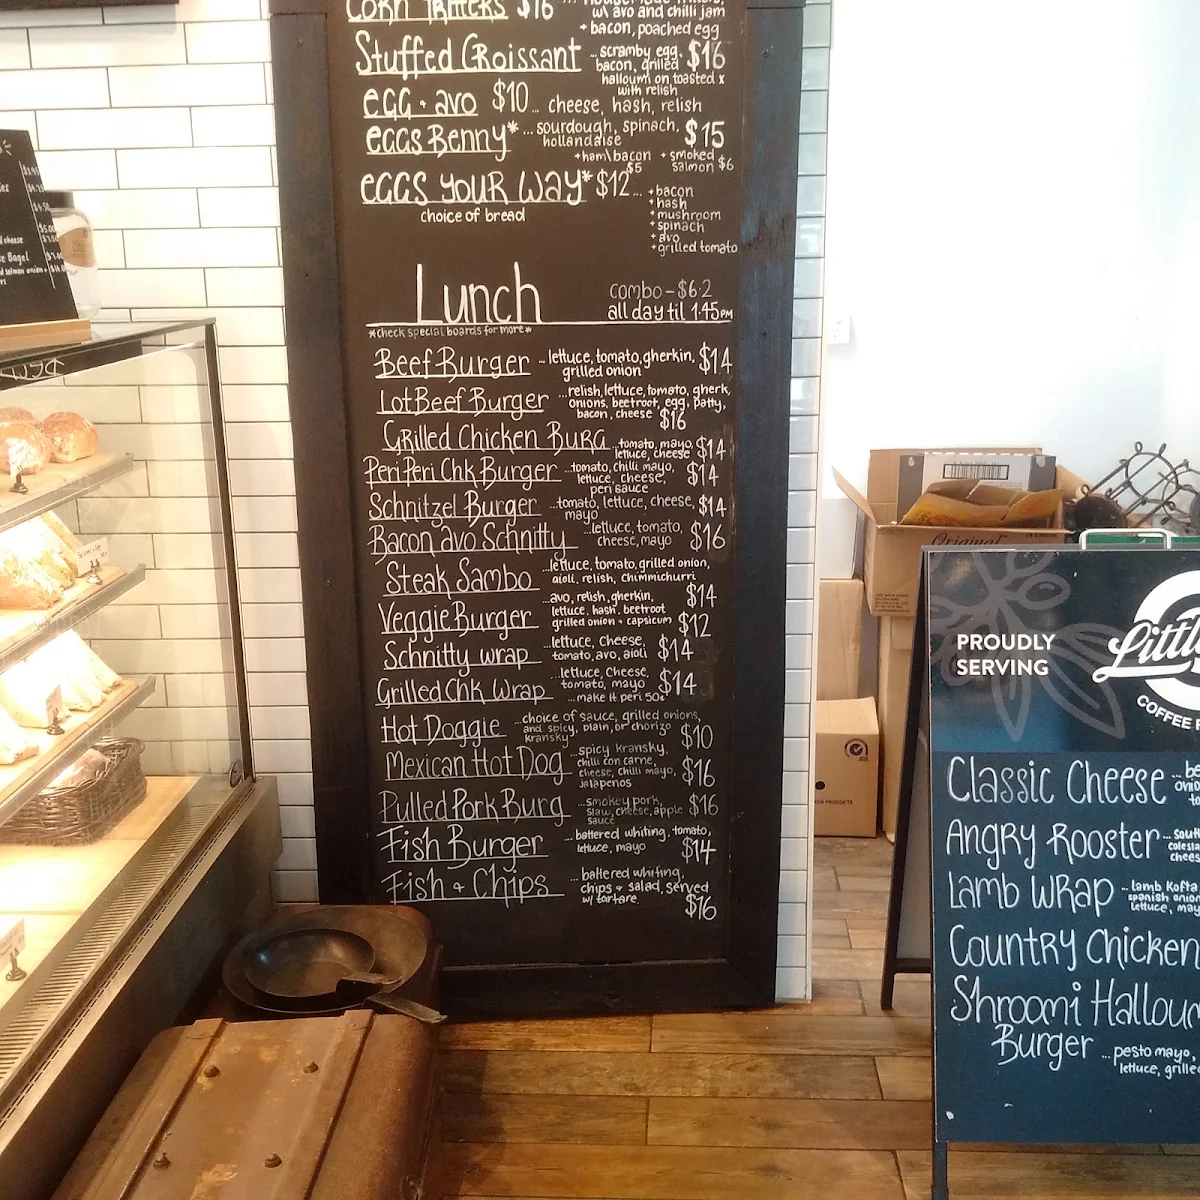 CORN FRITTERS $16
w/ avo and chilli jam
+ bacon, poached egg
Stuffed Croissant ... scramby egg, $16
bacon, grilled
halloumi on toasted x
with relish
egg + avo $10... cheese, hash, relish
eggs Benny* ... sourdough, spinach, $15
hollandaise
+ham\bacon $5 + smoked salmon $6
eggs your way* $12...
choice of bread
+bacon
+hash
+mushroom
+spinach
+avo
+grilled tomato
Lunch
combo - $6.2
all day til 1.45pm
*check special boards for more*
Beef Burger ... lettuce, tomato, gherkin, $14
grilled onion
Lot Beef Burger ... relish, lettuce, tomato, gherk,
onions, beetroot, egg, patty,
bacon, cheese $16
Grilled Chicken Burg ... tomato, mayo, $14
lettuce, cheese
Peri Peri Chk Burger ... tomato, chilli mayo, $14
lettuce, cheese,
peri sauce
Schnitzel Burger ... tomato, lettuce, cheese, $14
mayo
Bacon avo Schnitty ... lettuce, tomato, $16
cheese, mayo
Steak Sambo ... lettuce, tomato, grilled onion,
aioli, relish, chimmichurri $14
Veggie Burger ... avo, relish, gherkin,
lettuce, hash, beetroot
grilled onion + capsicum $12
Schnitty wrap ... lettuce, cheese, $14
tomato, avo, aioli
Grilled Chk Wrap ... lettuce, cheese, $14
tomato, mayo
... make it peri 50¢
Hot Doggie ... choice of sauce, grilled onions,
and spicy, plain, or chorizo
kransky $10
Mexican Hot Dog ... spicy kransky,
chilli con carne,
cheese, chilli mayo, $16
jalapenos
Pulled Pork Burg ... smokey pork, $16
slaw, cheese, apple
sauce
Fish Burger ... battered whiting, tomato,
lettuce, mayo $14
Fish + Chips ... battered whiting,
chips + salad, served
w/ tartare, $16
cheese
Bagel
Original
PROUDLY
SERVING
Little
COFFEE
Classic Cheese
Angry Rooster
Lamb Wrap ... lamb Kofta
spanish onion
lettuce, may
Country Chicken
Shroomi Halloum
Burger ... pesto mayo,
lettuce, grille